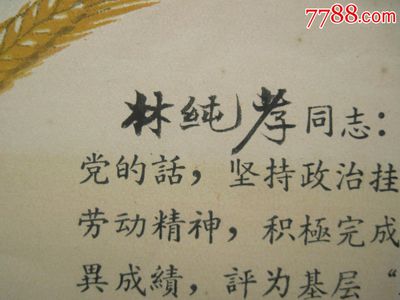 7788.com
林纯孝同志：
党的話，坚持政治挂
劳动精神，积極完成
異成績，評为基层“